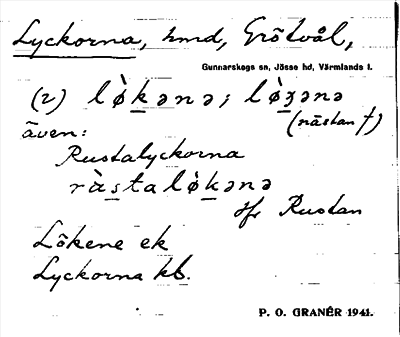 Lyckorna, hmd, Grötvål,
Gunnarskogs sn, Jösse hd, Värmlands l.
(2) lø̀kənə; lø̀ʒənə
(nästan f)
även:
Rustalyckorna
ràstalø̀kənə
jfr Rustan
Lökene ek
Lyckorna kb.
P. O. GRANÉR 1941.